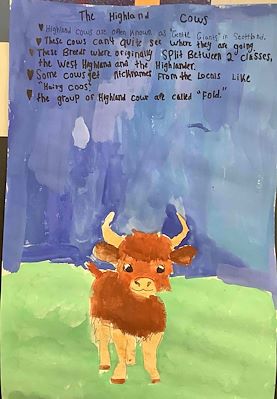 The Highland Cows
♥ Highland cows are often known as "Gentle Giants" in Scottland.
♥ These cows can't quite see where they are going.
♥ These Breeds where originally Split Between 2 classes,
the West Highland and the Highlander.
♥ Some cows get nicknames From the Locals Like
"Hairy Coos"
♥ the group of Highland cows are called "Fold."